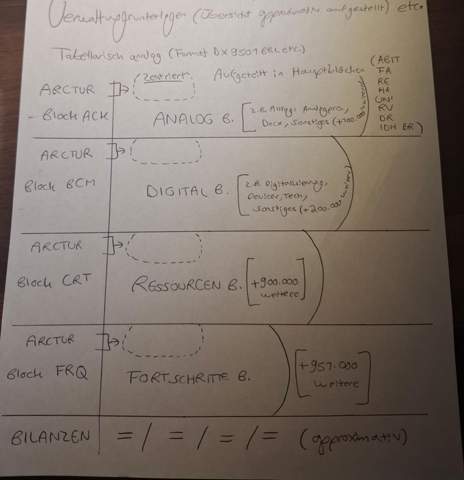 Verwaltungsunterlagen (Übersicht approximativ aufgestellt) etc.
Tabellarisch analog (Format DX9501 ERL etc.)
ARCTUR zentriert. Aufgeteilt in Hauptblöcken
- Block ACK ANALOG B. [z.B. Anlagen,
Docs, Sonstiges (+700.000 weitere)]
(ABIT
FA
RE
HA
UNI
RV
DR
IDH ER)
ARCTUR
Block BCM DIGITAL B. [z.B. Digitalisierung,
Devices, Tech,
Sonstiges (+200.000 weitere)]
ARCTUR
Block CRT RESSOURCEN B. [+900.000
weitere]
ARCTUR
Block FRQ FORTSCHRITTE B. [+957.000
weitere]
BILANZEN =/ =/ =/ = (approximativ)